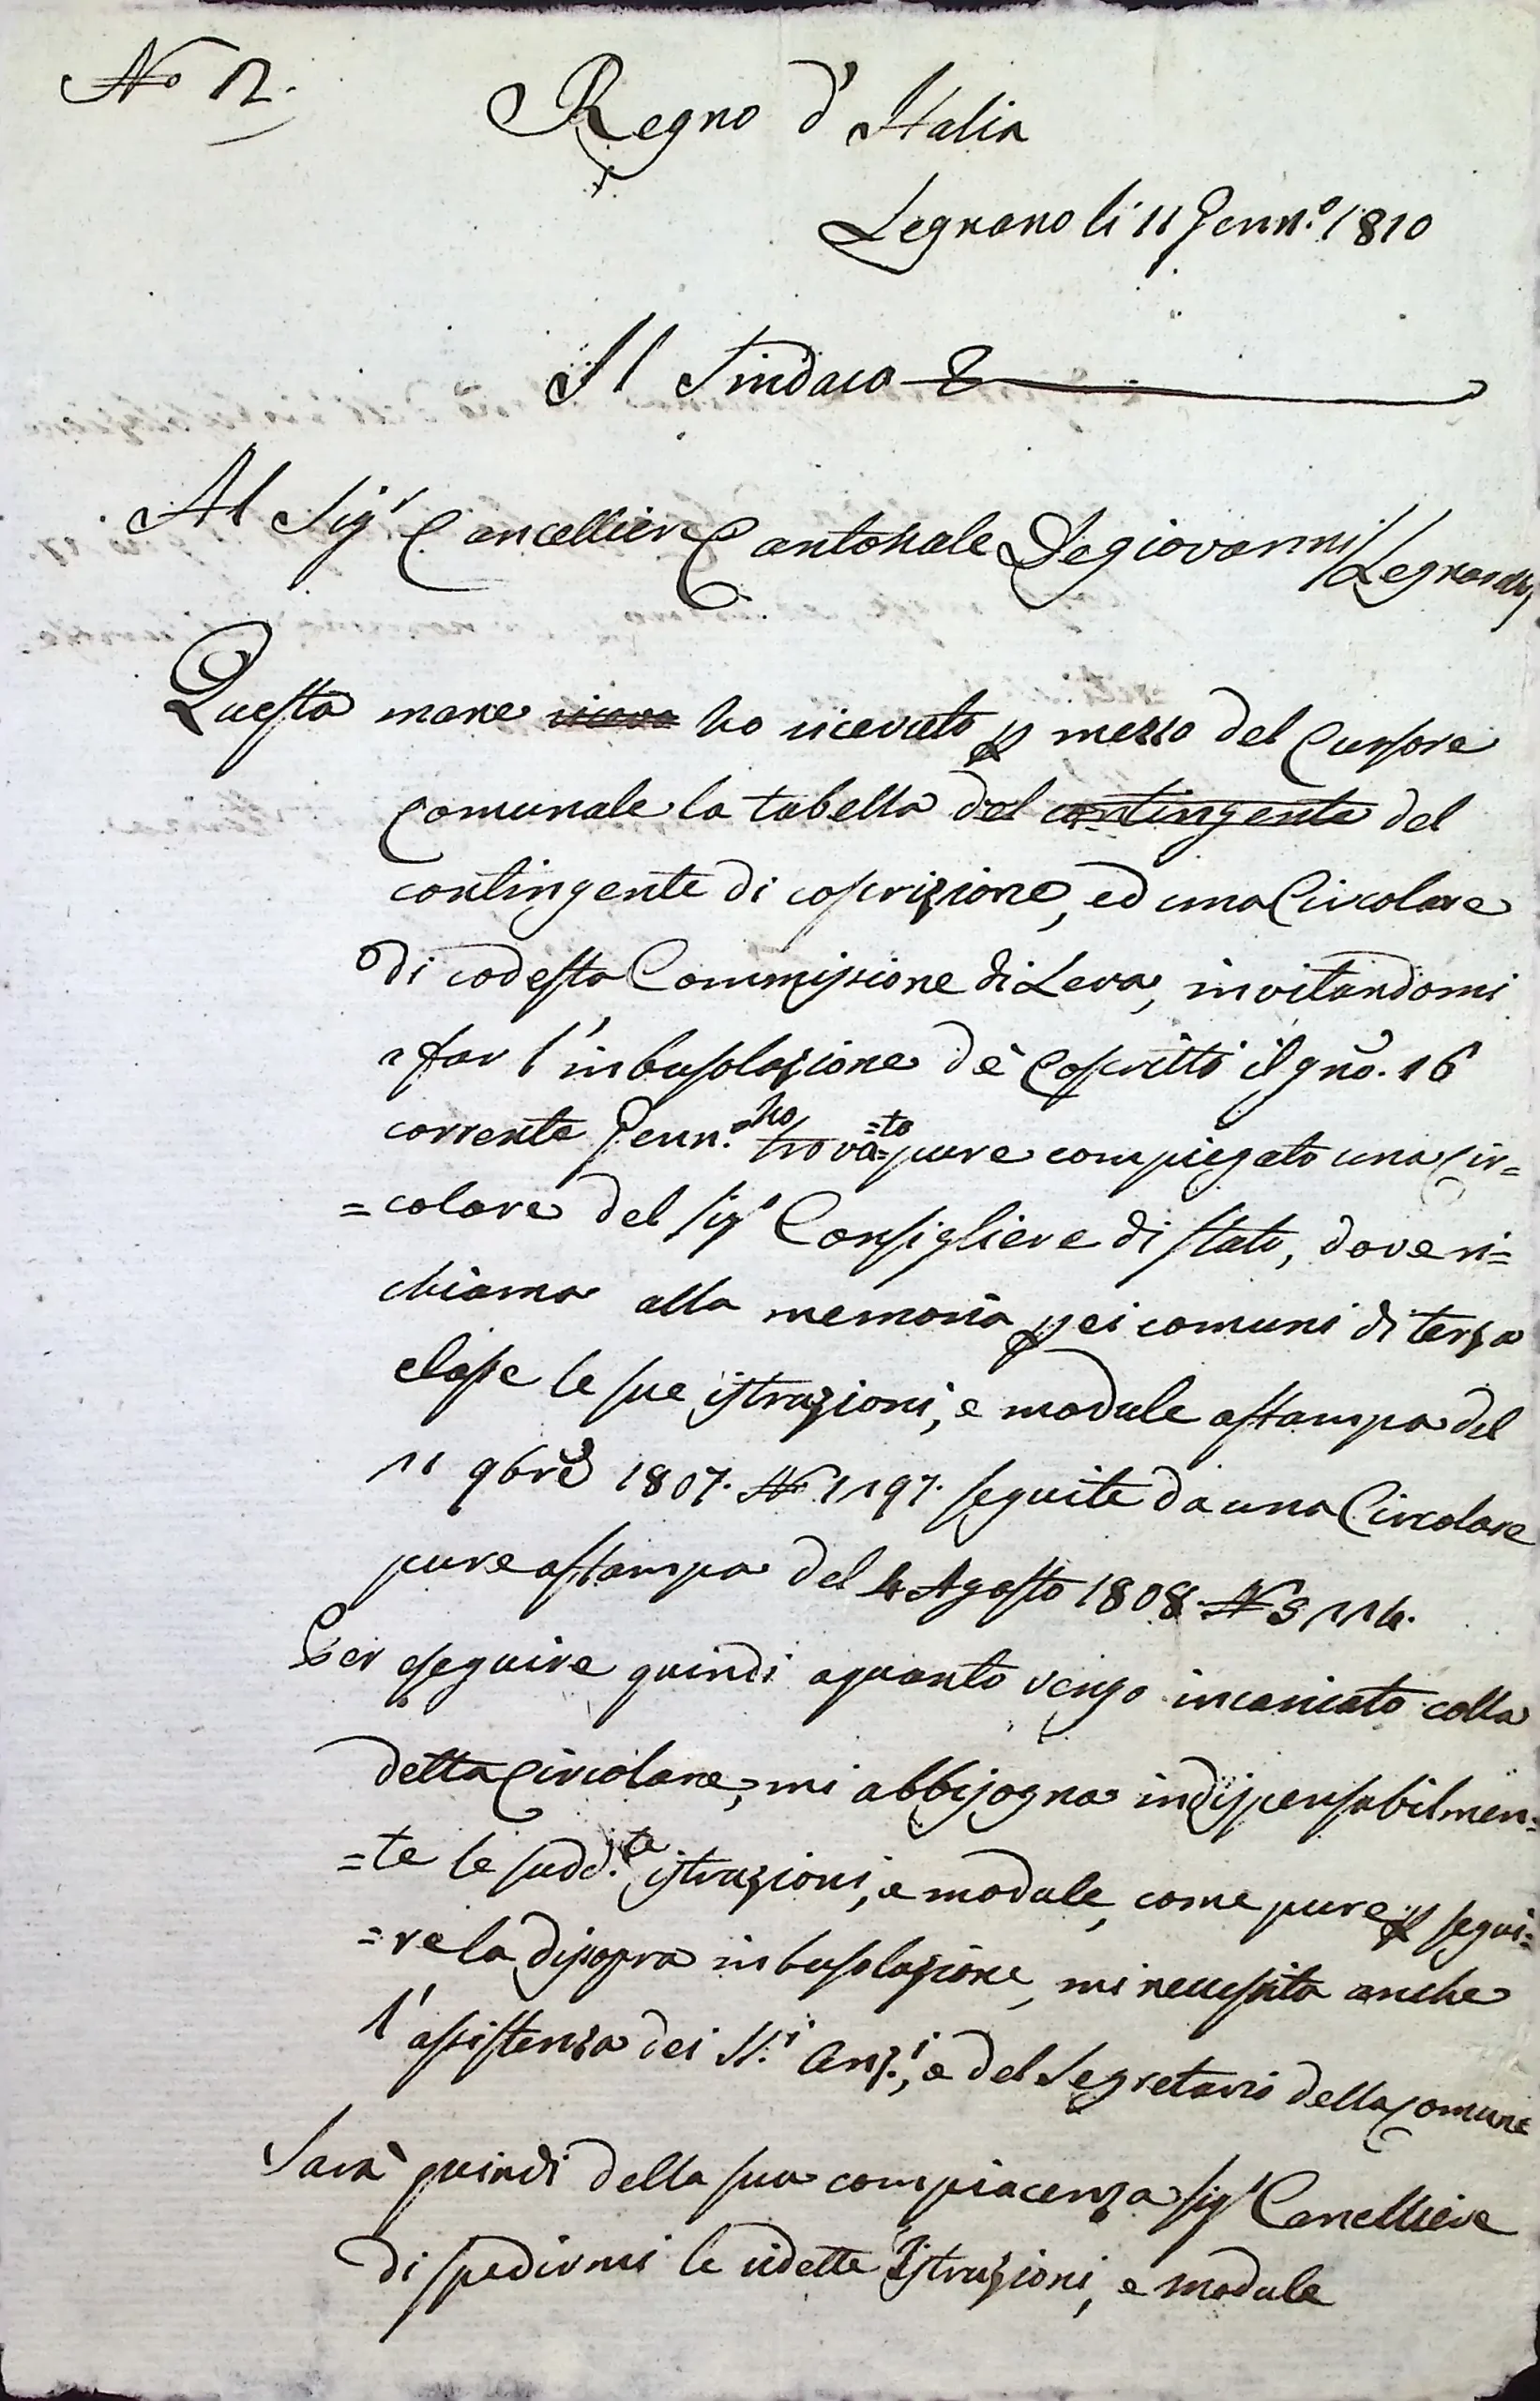 No 12.
Regno d'Italia
Legnano li 11 Genn.o 1810
Il Sindaco
Al Sig.r Cancelliere Cantonale Degiovanni / Legnano
Questa mane ho ricevuto p mezzo del Cursore
Comunale la tabella del contingente del
contingente di coscrizione, ed una Circolare
di codesta Commissione di Leva, invitandomi
a far l'inbusolazione de' Coscritti il gno. 16
corrente Genn.o ho trova=to pure compiegato una Cir=
=colare del Sig.r Consigliere di Stato, dove ri=
chiama alla memoria pei comuni di terza
classe le sue istruzioni, e module astampa del
11 9bre 1807. No 1197. seguite da una Circolare
pure astampa del 4 Agosto 1808. No 3114.
Per eseguire quindi aquanto vengo incaricato colla
detta Circolare, mi abbisogna indispensabilmen=
=te le sudd.te istruzioni, e module, come pure p segui=
=re la disopra inbusolazione, mi necessita anche
l'assistenza dei SS.i Anz.i, e del Segretario della Comune
Sarà quindi della sua compiacenza Sig.r Cancelliere
di spedirmi le ridette Istruzioni, e module